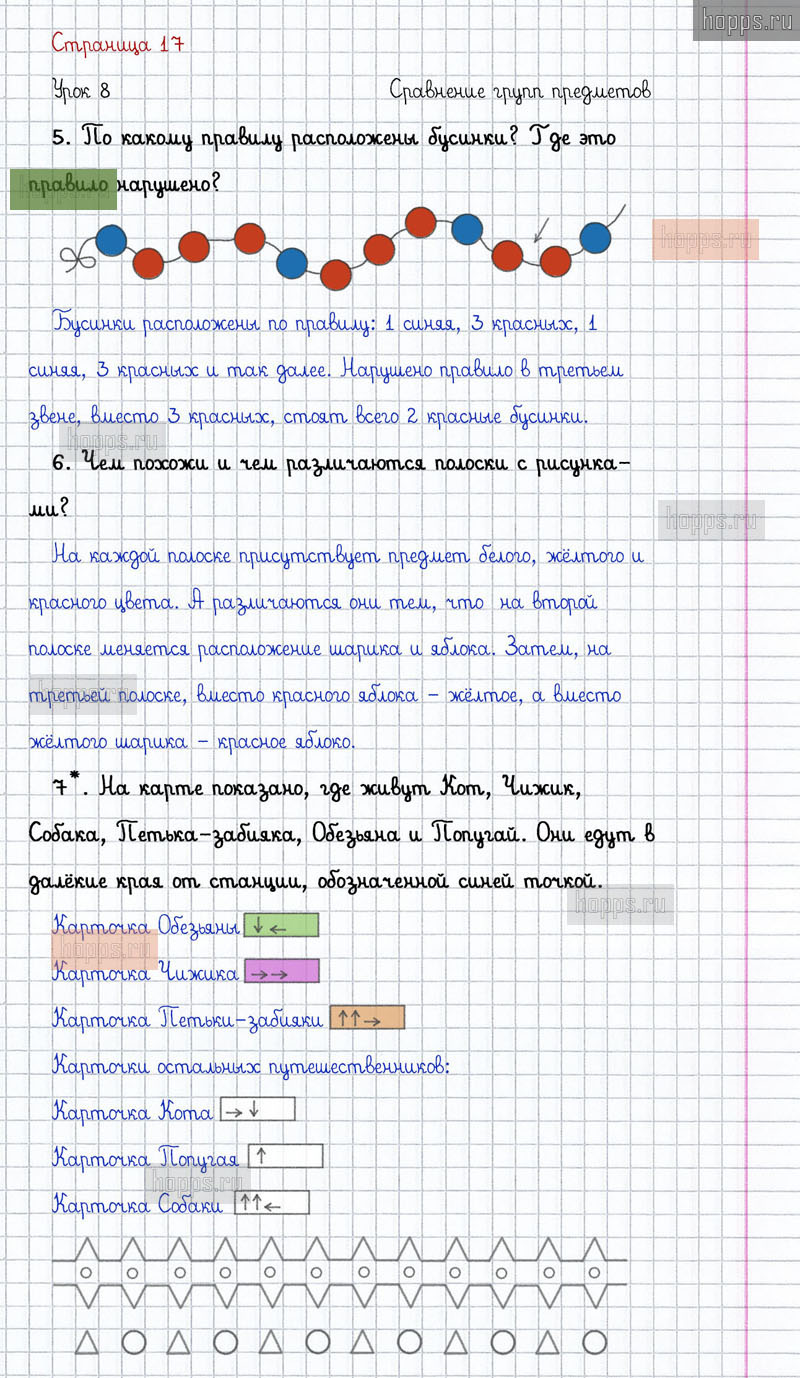 hopps.ru
Страница 17
Урок 8 Сравнение групп предметов
5. По какому правилу расположены бусинки? Где это
правило нарушено?
hopps.ru
Бусинки расположены по правилу: 1 синяя, 3 красных, 1
синяя, 3 красных и так далее. Нарушено правило в третьем
звене, вместо 3 красных, стоят всего 2 красные бусинки.
hopps.ru
6. Чем похожи и чем различаются полоски с рисунка-
ми?
hopps.ru
На каждой полоске присутствует предмет белого, жёлтого и
красного цвета. А различаются они тем, что на второй
полоске меняется расположение шарика и яблока. Затем, на
третьей полоске, вместо красного яблока – жёлтое, а вместо
жёлтого шарика – красное яблоко.
7*. На карте показано, где живут Кот, Чижик,
Собака, Петька-забияка, Обезьяна и Попугай. Они едут в
далёкие края от станции, обозначенной синей точкой.
hopps.ru
Карточка Обезьяны ↓←
hopps.ru
Карточка Чижика →→
Карточка Петьки-забияки ↑↑→
Карточки остальных путешественников:
Карточка Кота →↓
Карточка Попугая ↑
hopps.ru
Карточка Собаки ↑↑←